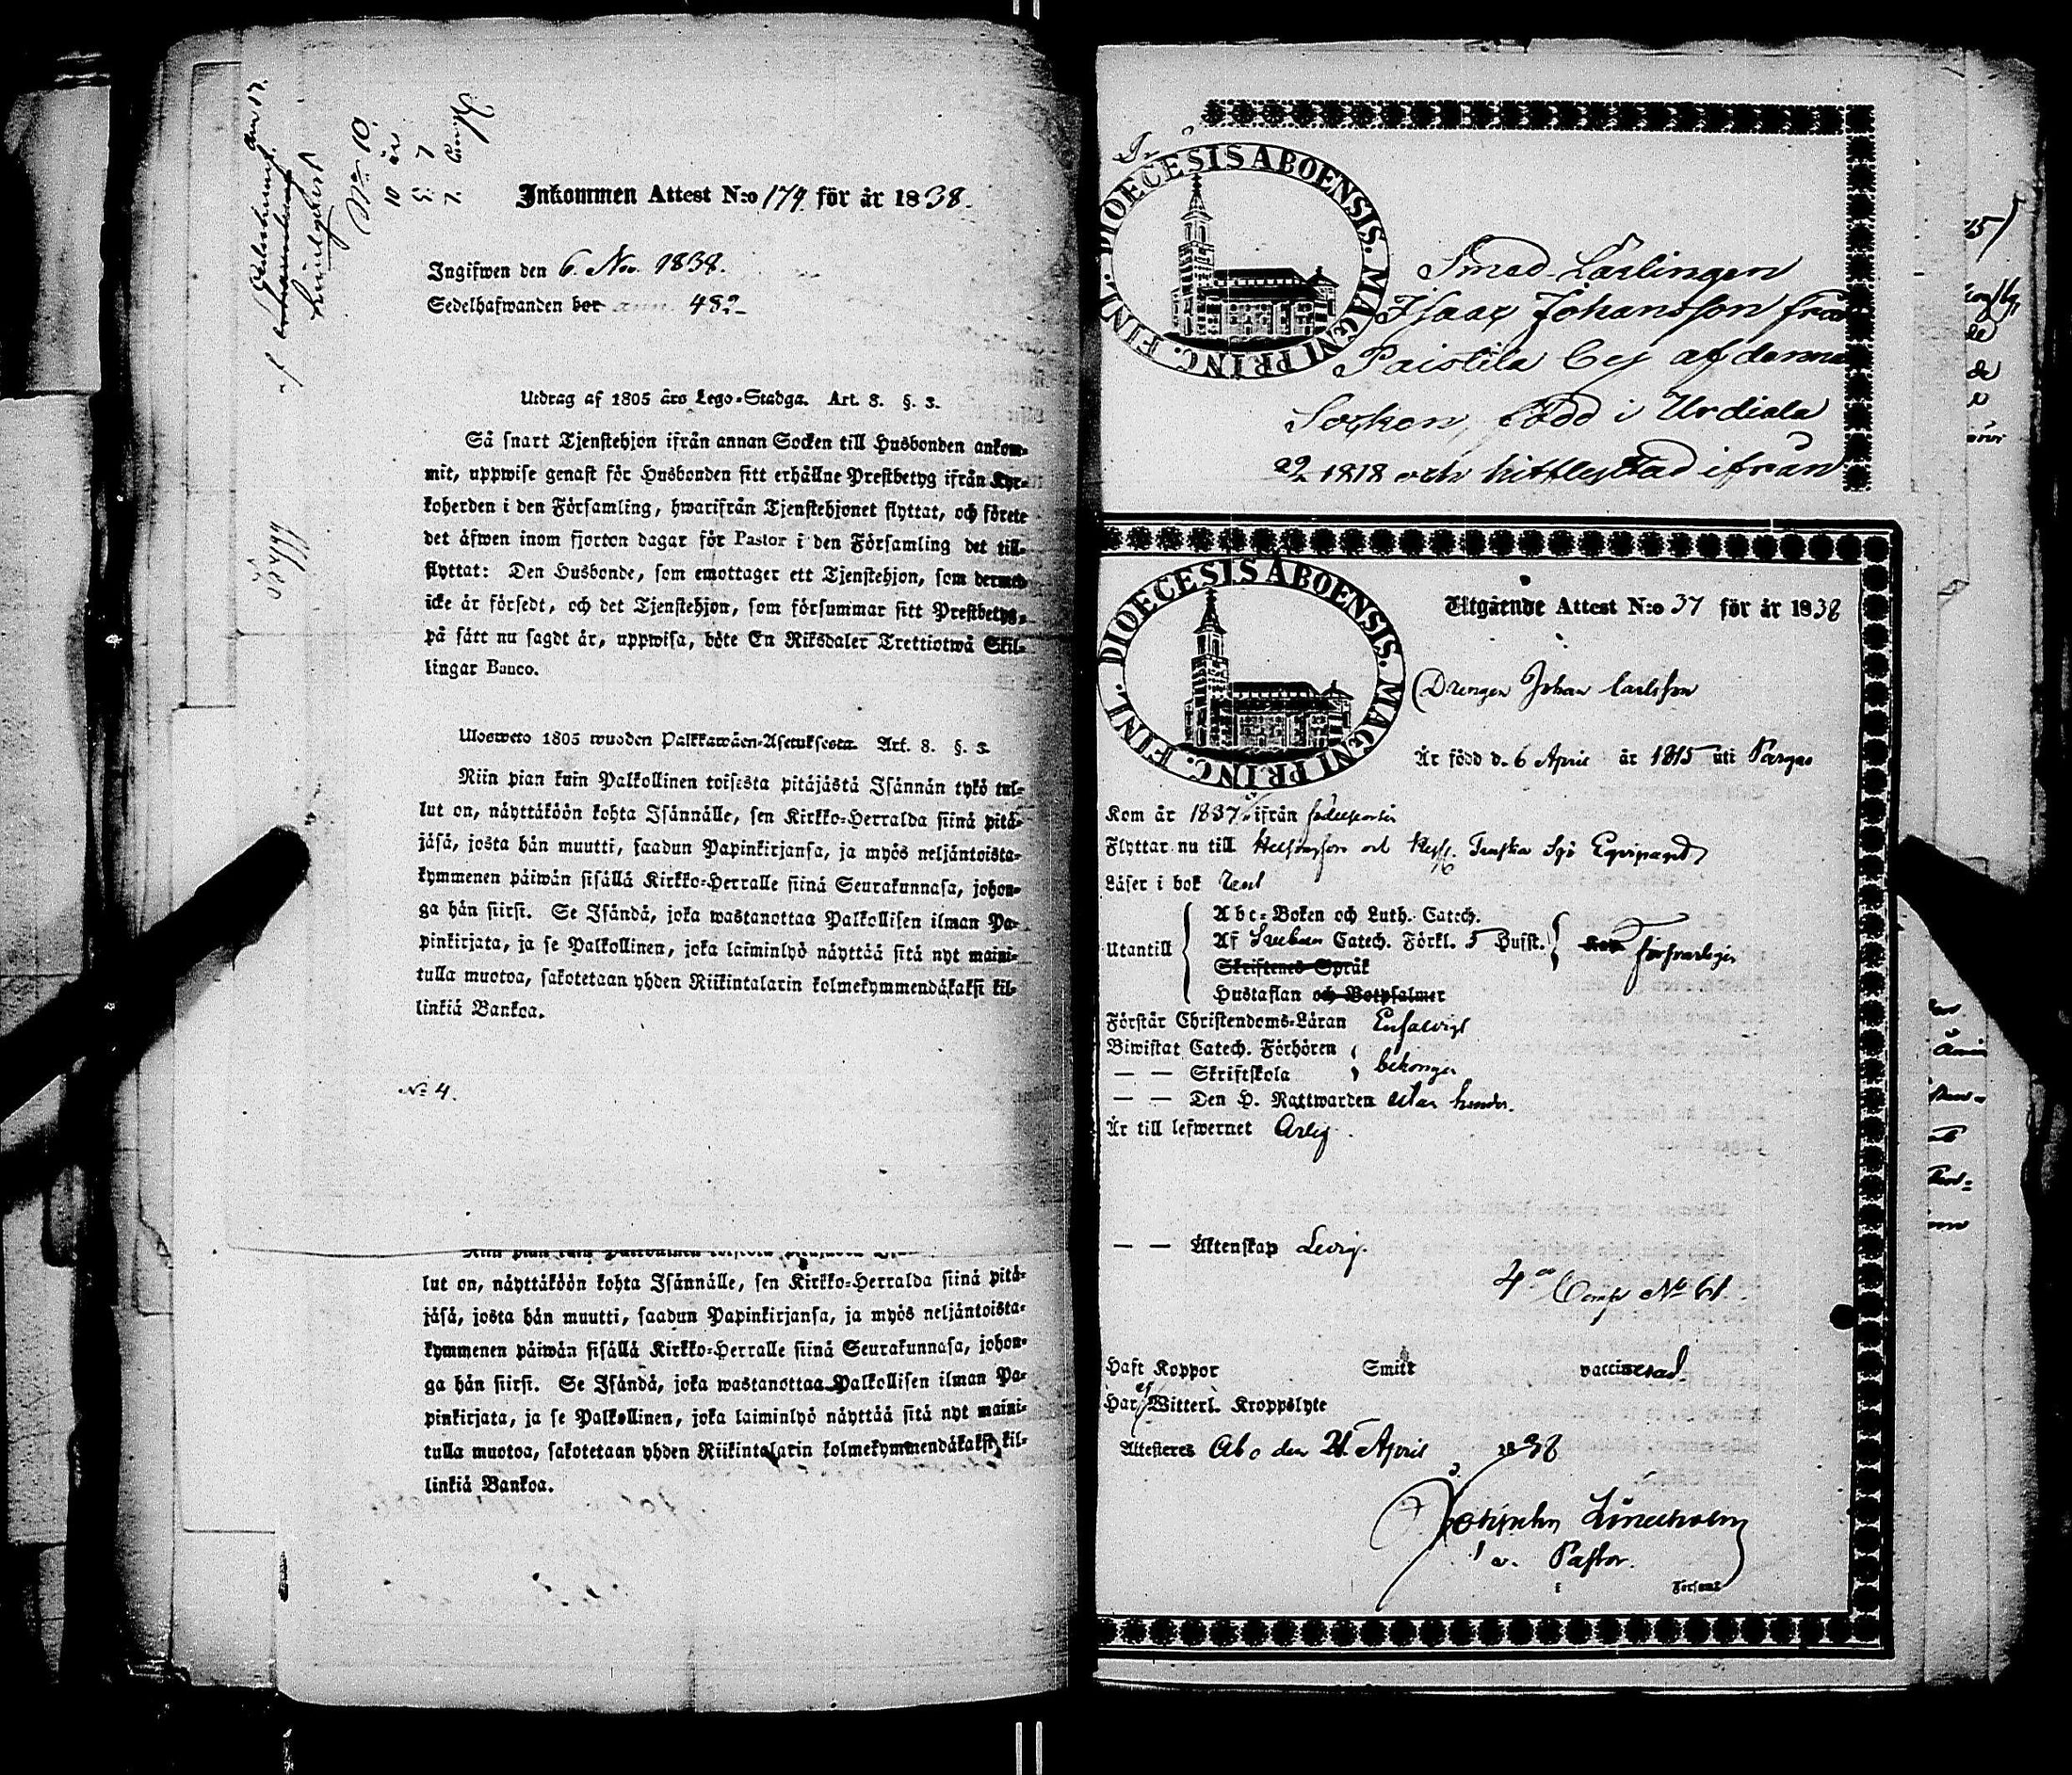 Inkommen Attest N:o 174 för år 1838.
Ingifwen den 6. Nov. 1838.
Sedelhafwanden bor 482
Utdrag af 1805 års Lego-Stadga. Art. 8. §. 3.
Så snart Tjenstehjon ifrån annan Socken till Husbonden ankom-
mit, uppwise genast för Husbonden sitt erhållne Prestbetyg ifrån Kyr-
koherden i den Församling, hwarifrån Tjenstehjonet flyttat, och förete
det äfwen inom fjorton dagar för Pastor i den Församling det till-
flyttat: Den Husbonde, som emottager ett Tjenstehjon, som dermed
icke är försedt, och det Tjenstehjon, som försummar sitt Prestbetyg,
på sätt nu sagdt är, uppwisa, böte En Riksdaler Trettiotwå Skil-
lingar Banco.
Ulosweto 1805 wuoden Palkkawäen-Asetuksesta. Art. 8. §. 3.
Niin pian kuin Palkollinen toisesta pitäjästä Isännän tykö tul-
lut on, näyttäköön kohta Isännälle, sen Kirkko-Herralda siinä pitä-
jäsä, josta hän muutti, saadun Papinkirjansa, ja myös neljäntoista-
kymmenen päiwän sisällä Kirkko-Herralle siinä Seurakunnasa, johon-
ga hän siirsi. Se Isändä, joka wastanottaa Palkollisen ilman Pa-
pinkirjata, ja se Palkollinen, joka laiminlyö näyttää sitä nyt maini-
tulla muotoa, sakotetaan yhden Riikintalarin kolmekymmendäkaksi kil-
linkiä Bankoa.
No 4.
Niin pian kuin Palkollinen toisesta pitäjästä
lut on, näyttäköön kohta Isännälle, sen Kirkko-Herralda siinä pitä-
jäsä, josta hän muutti, saadun Papinkirjansa, ja myös neljäntoista-
kymmenen päiwän sisällä Kirkko-Herralle siinä Seurakunnasa, johon-
ga hän siirsi. Se Isändä, joka wastanottaa Palkollisen ilman Pa-
pinkirjata, ja se Palkollinen, joka laiminlyö näyttää sitä nyt maini-
tulla muotoa, sakotetaan yhden Riikintalarin kolmekymmendäkaksi kil-
linkiä Bankoa.
FINL. DIOECESIS ABOENSIS. MAGNI PRINC.
Smed-Lärlingen
Isaac Johansson från
Paistila by af denna
Socken, född i Urdiala
1818 och hitflyttad ifrån
FINL. DIOECESIS ABOENSIS. MAGNI PRINC.
Utgående Attest N:o 37 för år 1838
Drengen Johan Carlsson
Är född d. 6 April år 1815 uti Pargas
Kom år 1837 ifrån
Flyttar nu till Helsingfors och Sjö Equipaget
Läser i bok Rent
Utantill
Abc-Boken och Luth. Catech.
Af Svebilii Catech. Förkl. 5 Hufst. försvarligen
Skriftenes Språk
Hustaflan och Botpsalmer
Förstår Christendoms-Läran Enfaldigt
Biwistat Catech. Förhören
— — Skriftskola
— — Den H. Nattwarden utan hinder.
Är till lefwernet Ärlig.
— — Äktenskap Ledig.
4de Comp No 61.
Haft Koppor Smitt vaccinerad.
Har ej Witterl. Kroppslyte
Attesteras Åbo den 21. April 1838
Lindholm
v. Pastor.
i Församl.